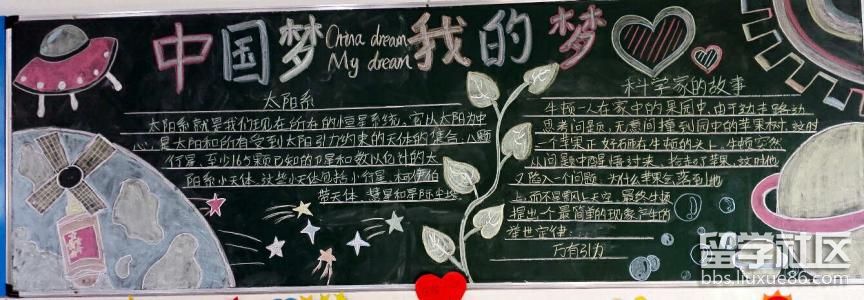 中国梦 我的梦
China dream
My dream
太阳系
太阳系就是我们现在所在的恒星系统，它以太阳为中
心，是太阳和所有受到太阳引力约束的天体的集合：八颗
行星、至少165颗已知的卫星和数以亿计的太
阳系小天体，这些小天体包括小行星、柯伊伯
带天体、彗星和星际尘埃。
科学家的故事
牛顿一人在家中的果园中，由于边走路边
思考问题，无意间撞到园中的苹果树，这时
一个苹果正好砸在牛顿的头上，牛顿突然
从问题中醒悟过来，捡起了苹果，这时他
又陷入一个问题，为什么苹果会落到地
上，而不是飘上天空，最终牛顿
提出一个最简单的现象产生的
举世定律……
万有引力
留学社区
bbs.liuxue86.com